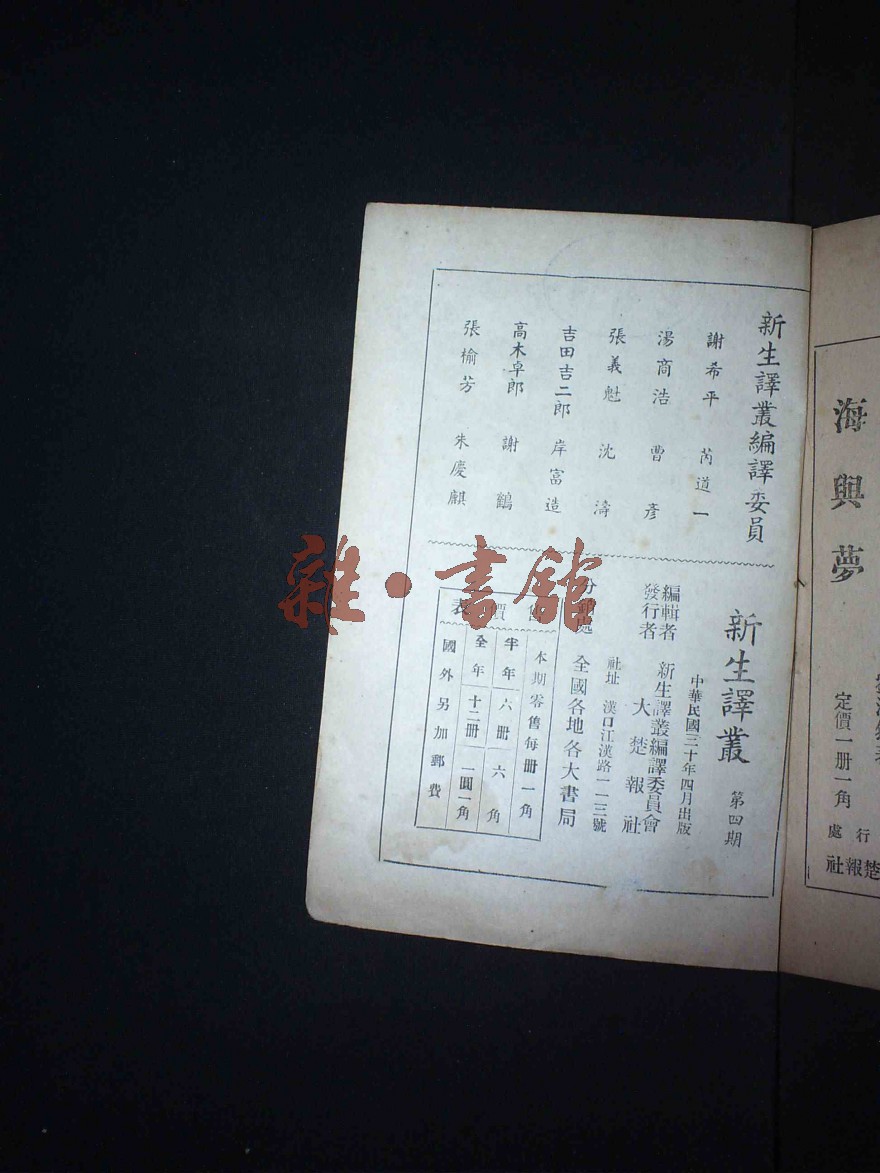 新生譯叢編譯委員
謝希平 芮道一
湯商浩 曹彥
張義魁 沈濤
吉田吉二郎 岸富造
高木卓郎 謝鶴
張榆芳 朱慶麒
新生譯叢 第四期
中華民國三十年四月出版
編輯者 新生譯叢編譯委員會
發行者 大楚報社
社址 漢口江漢路一一三號
全國各地各大書局
價表
本期零售每冊一角
半年 六冊 六角
全年 十二冊 一圓一角
國外另加郵費
海與夢
定價一冊一角
行處
楚報社
雜·書館